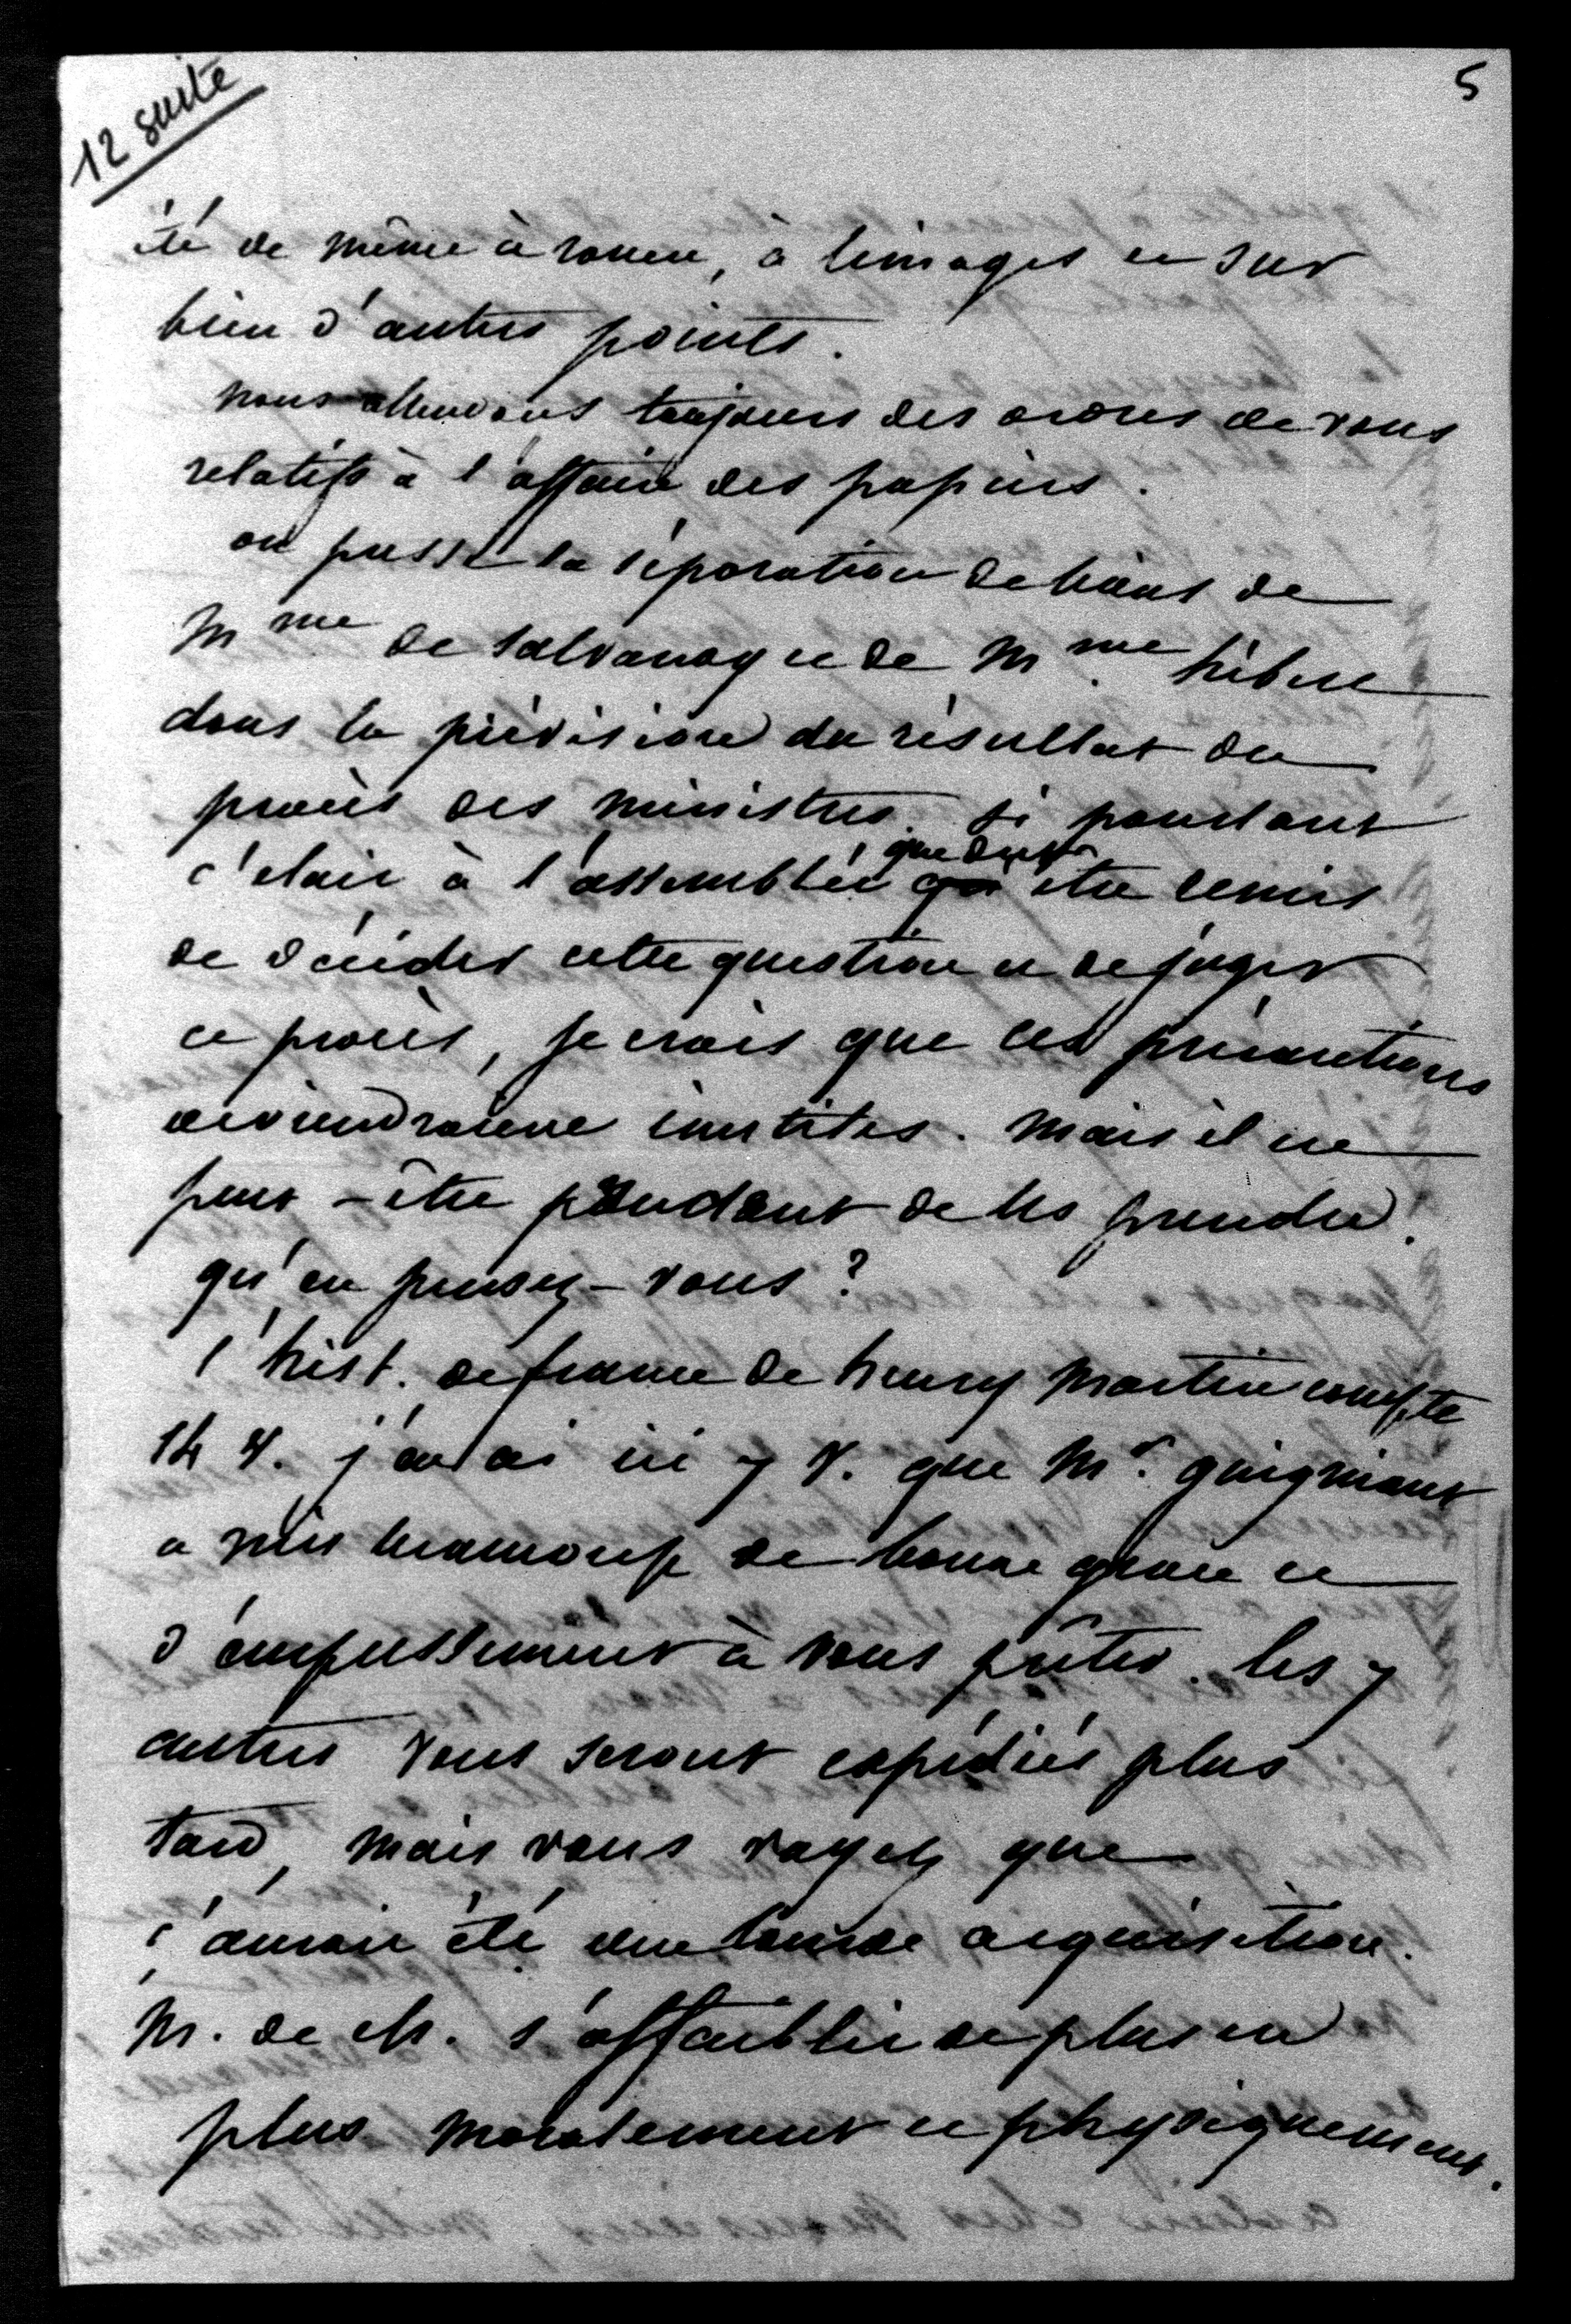 12 suite
5
été de même à rouen, à limoges et sur
bien d'autres points.
nous attendons toujours des ordres de vous
relatifs à l'affaire des papiers.
on presse la séparation de biens de
Mme de salvandy et de Mme hébert
dans la prévision du résultat du
procès des ministres. si pourtant
c'était à l'assemblée que dut être remis
de décider cette question et de juger
ce procès, je crois que ces précautions
deviendraient inutiles. mais il est
peut-être prudent de les prendre.
qu'en pensez-vous?
l'hist. de france de henry martin compte
14 v. j'en ai ici 7 v. que Mr. guigniaut
a mis beaucoup de bonne grâce et
d'empressement à vous prêter. les 7
autres vous seront expédiés plus
tard, mais vous voyez que
c'aurait été une lourde acquisition.
M. de ch. s'affaiblit de plus en
plus moralement et physiquement.